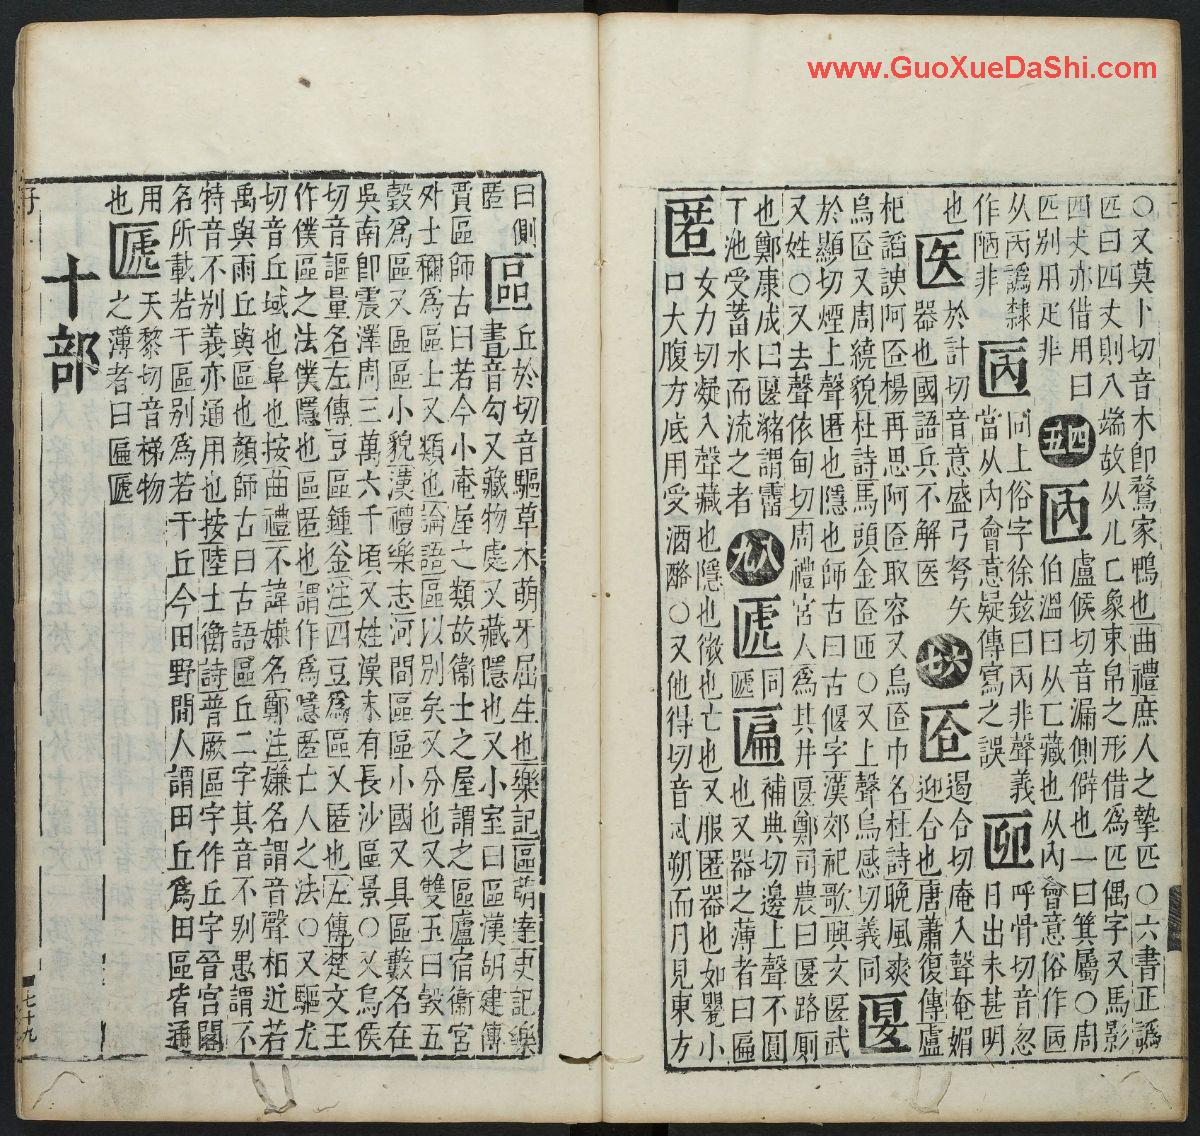 www.GuoXueDaShi.com
○又莫卜切音木卽鶩家鴨也曲禮庶人之摯匹○六書正譌
匹曰四丈則八端故从儿匸象束帛之形借爲匹偶字又馬影
四丈亦借用曰四五㔷盧候切音漏側僻也一曰箕屬○周
匹别用疋非伯溫曰从匸藏也从內會意俗作㔷
从丙譌隸㔷同上俗字徐鉉曰丙非聲義呼骨切音忽
作陋非當从內會意疑傳寫之誤日出未甚明
也医於計切音意盛弓弩矢六七匼遏合切庵入聲匼媚
器也國語兵不解医迎合也唐蕭復傳盧
杞諂諛阿匼楊再思阿匼取容又烏匼巾名杜詩晚風爽
烏匼又周繞貌杜詩馬頭金匼匝○又上聲烏感切義同匽
於顯切煙上聲匿也隱也師古曰古偃字漢郊祀歌興文匽武
又姓○又去聲依甸切周禮宮人爲其井匽鄭司農曰匽路厠
也鄭康成曰匽瀦謂霤
下池受蓄水而流之者八九匾補典切邊上聲不圓
匿女力切凝入聲藏也隱也微也亡也又服匿器也如甖小
口大腹方底用受酒酪○又他得切音忒朔而月見東方
曰側區丘於切音驅草木萌牙屈生也樂記區萌達史記樂
匿書音勾又藏物處又藏隱也又小室曰區漢胡建傳
賈區師古曰若今小庵屋之類故衞士之屋謂之區廬宿衞宮
外士稱爲區士又類也論語區以别矣又分也又雙玉曰瑴五
瑴爲區又區區小貌漢禮樂志河間區區小國又具區藪名在
吳南卽震澤周三萬六千頃又姓漢末有長沙區景○又烏侯
切音謳量名左傳豆區鍾釜注四豆爲區又匿也左傳楚文王
作僕區之法僕隱也區匿也謂作爲隱匿亡人之法○又驅尤
切音丘域也阜也按曲禮不諱嫌名鄭注嫌名謂音聲相近若
禹與雨丘與區也顏師古曰古語區丘二字其音不别愚謂不
特音不别義亦通用也按陸士衡詩普厥區宇作丘宇晉宮閣
名所載若干區别爲若干丘今田野間人謂田丘爲田區皆通
用㔸天黎切音梯物
也之薄者曰匾㔸
十部
七十九